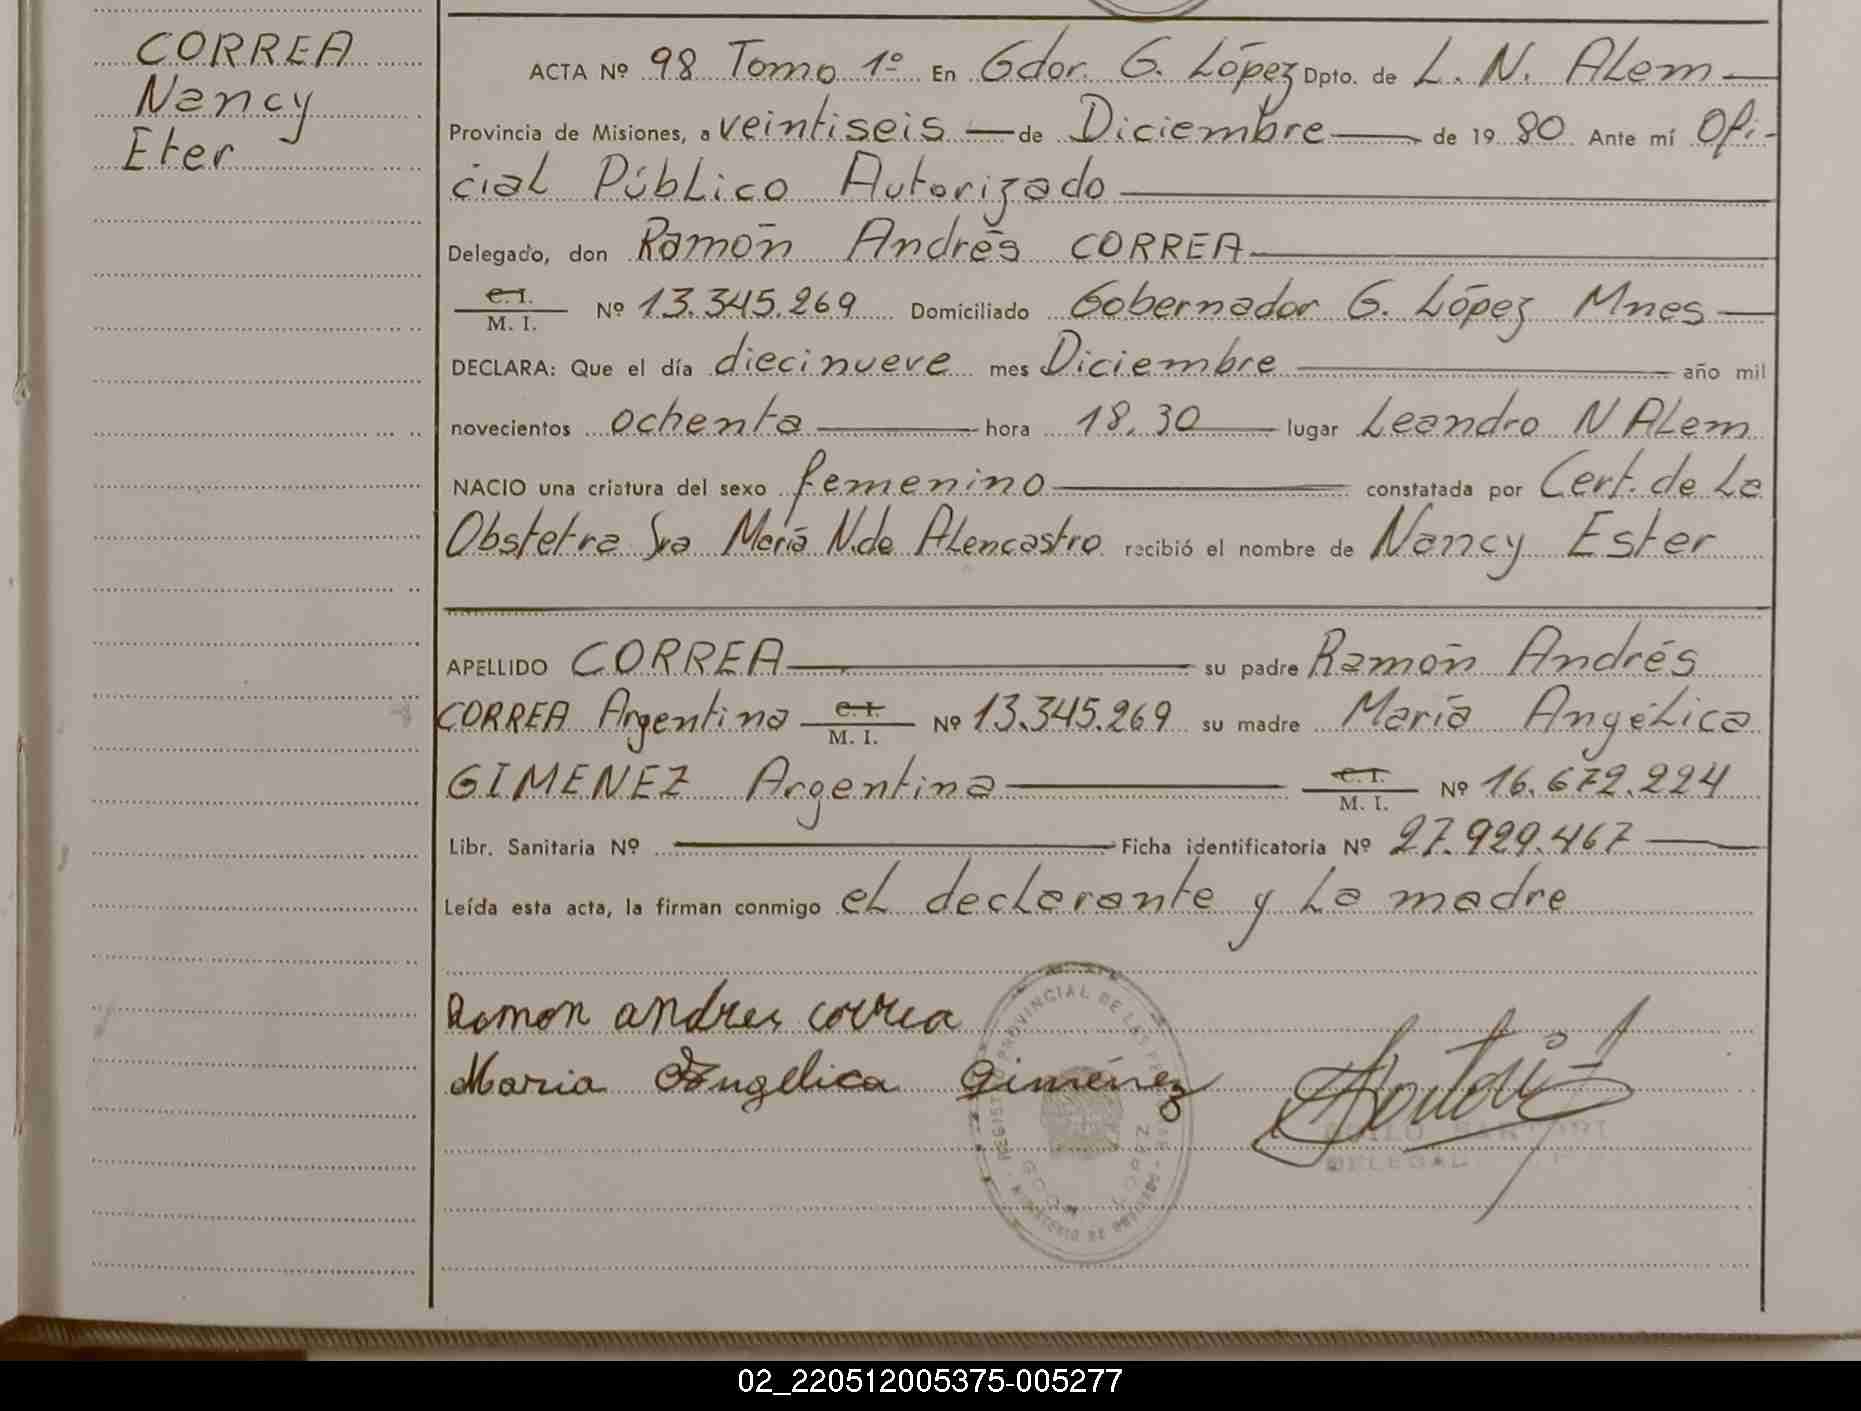 CORREA
Nancy
Eter
ACTA Nº 98 Tomo 1º En Gdor. G. López Dpto. de L. N. ALem
Provincia de Misiones, a veintiseis de Diciembre de 1980 Ante mí Ofi-
cial Público Autorizado
Delegado, don Ramón Andrés CORREA
C. I.
M. I. Nº 13.345.269 Domiciliado Gobernador G. López Mnes
DECLARA: Que el día diecinueve mes Diciembre año mil
novecientos ochenta hora 18,30 lugar Leandro N ALem
NACIO una criatura del sexo femenino constatada por Cert. de La
Obstetra Sra María N. de ALencastro recibió el nombre de Nancy Ester
APELLIDO CORREA su padre Ramón Andrés
CORREA Argentina C. I. M. I. Nº 13.345.269 su madre María Angélica
GIMENEZ Argentina C. I. M. I. Nº 16.672.224
Libr. Sanitaria Nº Ficha identificatoria Nº 27.929.467
Leída esta acta, la firman conmigo eL decLarante y La madre
Ramon andres correa
Maria Angelica Giménez
REGISTRO PROVINCIAL DE LAS PERSONAS
MINISTERIO DE GOBIERNO
GDOR. LOPEZ
DELEGAD
02_220512005375-005277